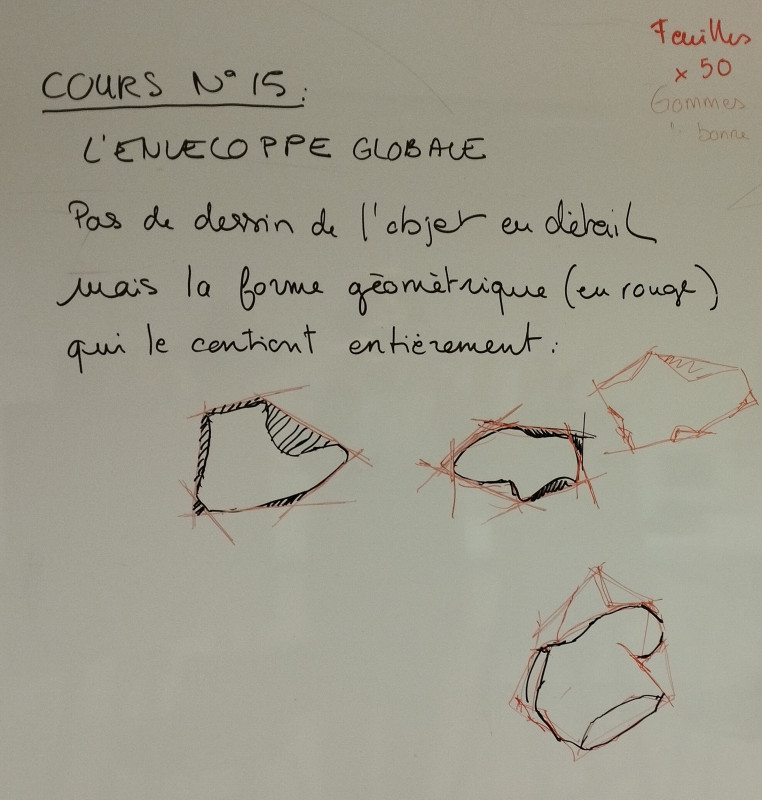 COURS N° 15:
L'ENVELOPPE GLOBALE
Pas de dessin de l'objet en détail
mais la forme géomètrique (en rouge)
qui le contient entièrement:
Feuilles
x 50
Gommes
bonne